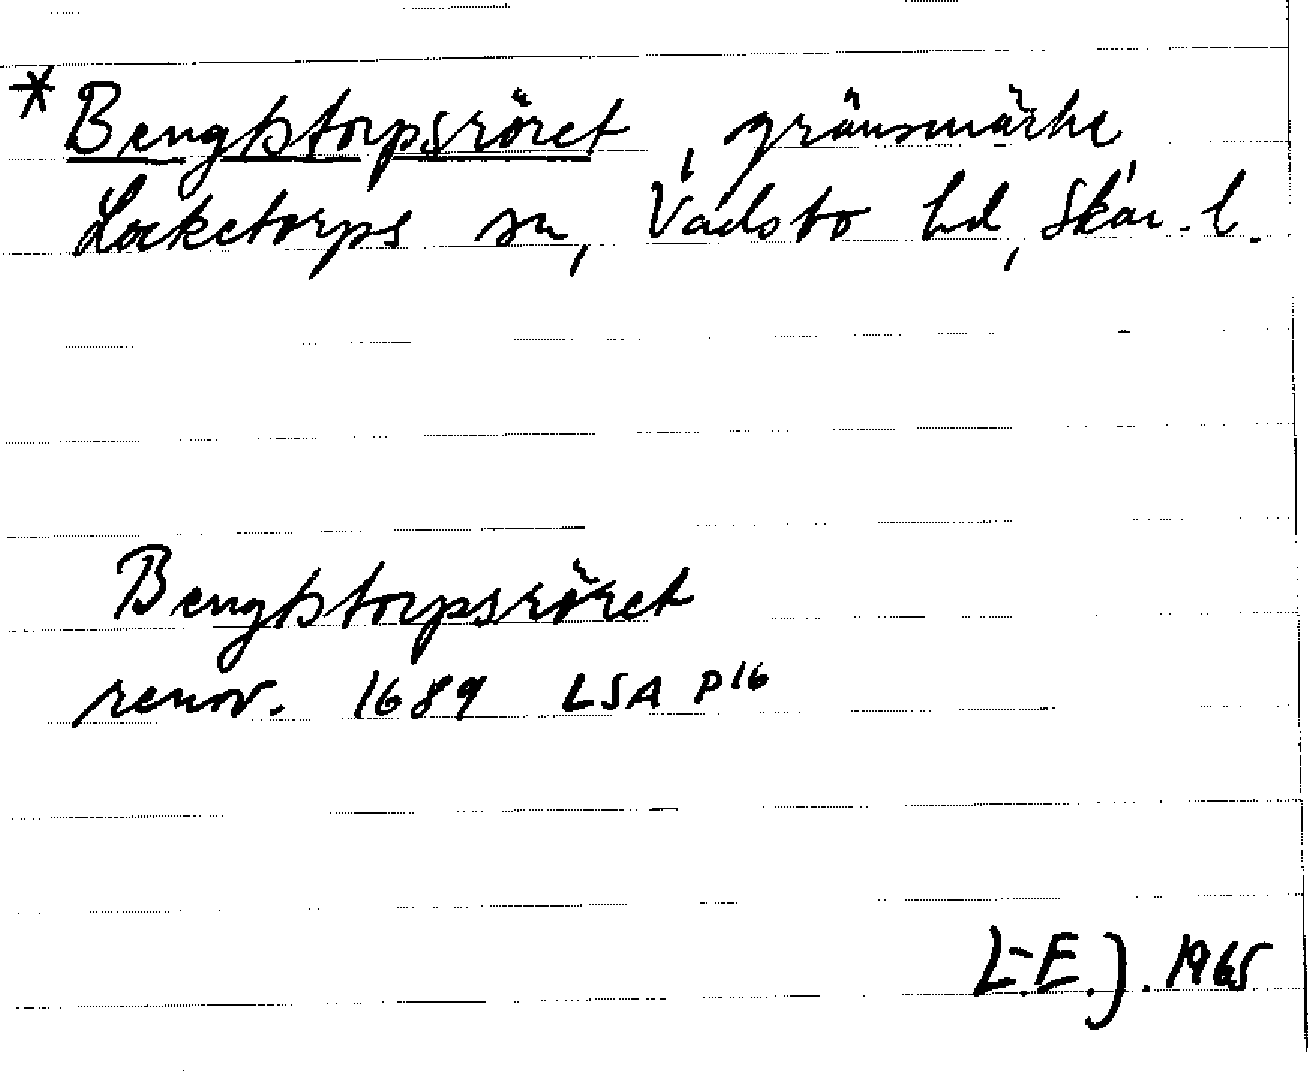 * Bengtstorpsröret, gränsmärke
Locketorps sn, Vadsbo hd, Skar. l.
Bengtstorpsröret
renov. 1689 LSA P 16
L-E. J. 1965